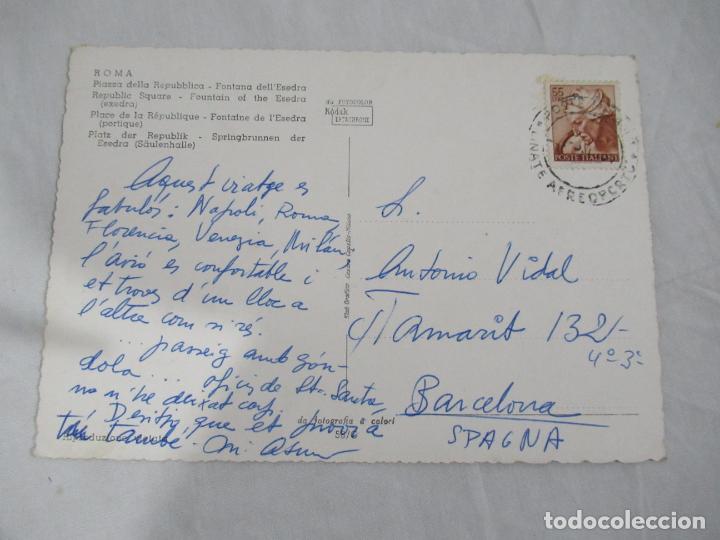 ROMA
Piazza della Repubblica - Fontana dell'Esedra
Republic Square - Fountain of the Esedra
(exedra)
Place de la République - Fontaine de l'Esedra
(portique)
Platz der Republik - Springbrunnen der
Esedra (Säulenhalle)
da FOTOCOLOR
Kodak
EKTACHROME
55
POSTE ITALIANE
AEROPORTO
Aquest viatge es
fabulós: Napoli, Roma,
Florencia, Venezia, Milán
l'avió es confortable i
et troves d'un lloc a
l'altre com si rés.
... passeig amb gón-
dola ... oficis de St. Santa,
no n'he deixat cap.
Desitjo que et provi
també. M. Asun
Sr.
Antonio Vidal
c/ Tamarit 132-
4º 3ª
Barcelona
SPAGNA
da fotografia a colori
riproduzione vietata
todocoleccion
todocoleccion.net